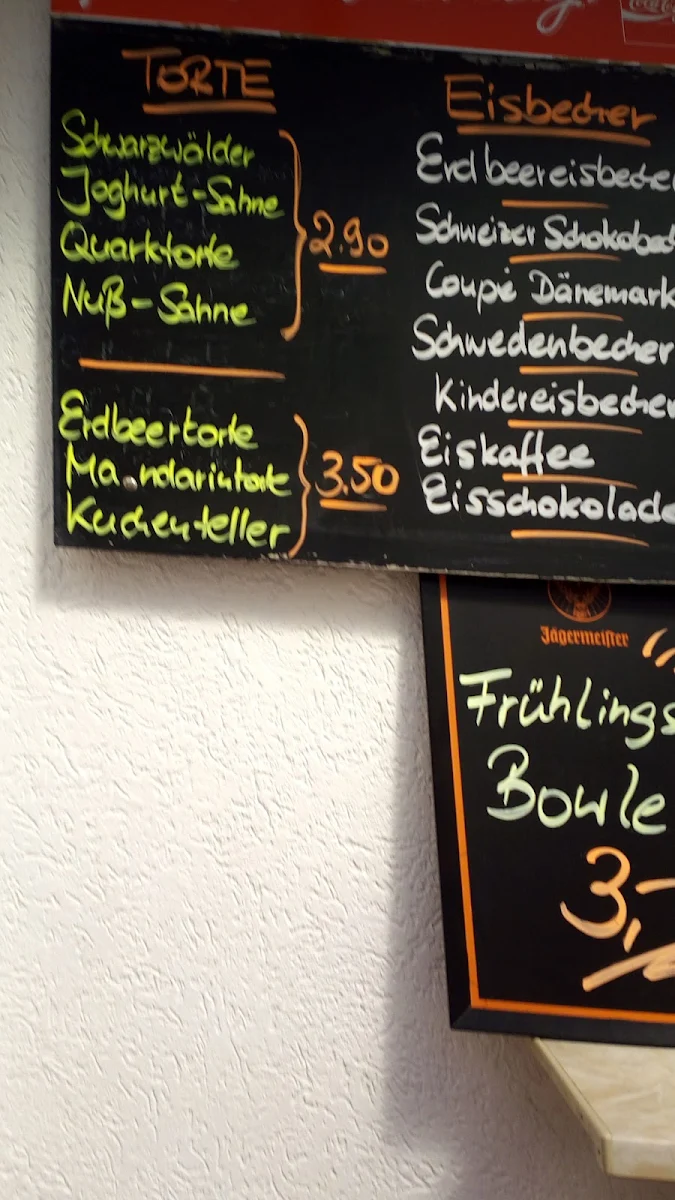 Coca-Cola
TORTE
Schwarzwälder
Joghurt-Sahne
Quarktorte
Nuß-Sahne
2.90
Erdbeertorte
Mandarintorte
Kuchenteller
3.50
Eisbecher
Erdbeereisbeche
Schweizer Schokobec
Coupé Dänemark
Schwedenbecher
Kindereisbecher
Eiskaffee
Eisschokolade
Jägermeister
Frühlings
Bowle
3,-